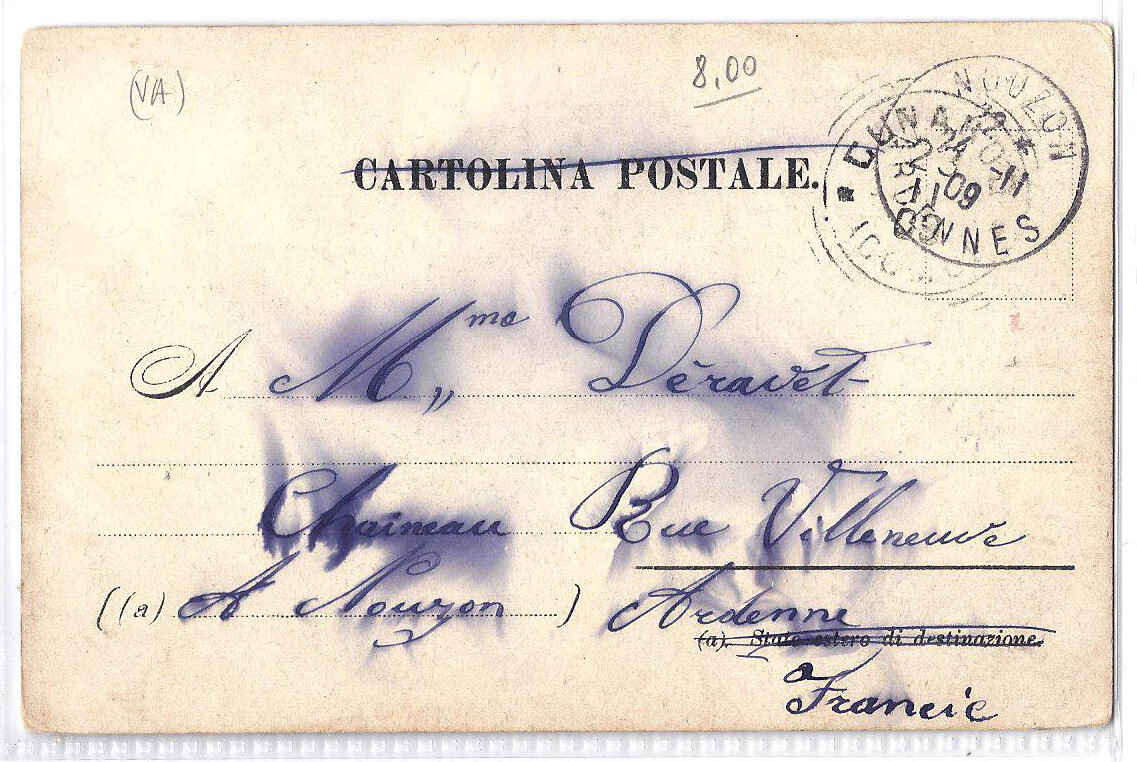 (VA)
8,00
CARTOLINA POSTALE.
NOUZON
ARDENNES
A Mme Déravet
Chaineau Rue Villeneuve
(a) A Nouzon Ardenne
(a). Stato estero di destinazione.
a
Francie